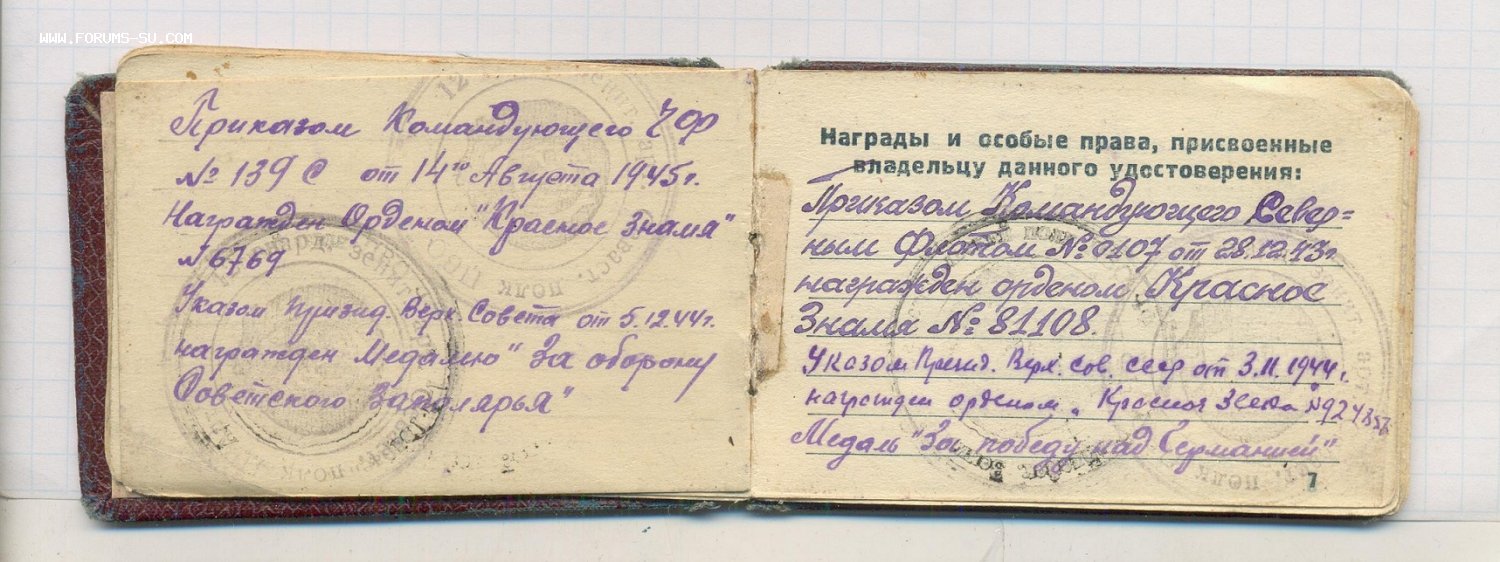 WWW.FORUMS-SU.COM
Приказом Командующего ЧФ
№ 139 С от 14го Августа 1945г.
Награжден Орденом "Красное Знамя"
№ 6769
Указом Призид. Верх. Совета от 5.12.44г.
награжден Медалью "За оборону
Советского Заполярья"
Награды и особые права, присвоенные
владельцу данного удостоверения:
Приказом Командующего Север=
ным Флотом № 0107 от 28.12.43г.
награжден орденом Красное
Знамя № 81108.
Указом Презид. Верх. Сов. ссср от 3.11.1944г.
награжден орденом „Красная
Медаль "За победу над Германией"
7